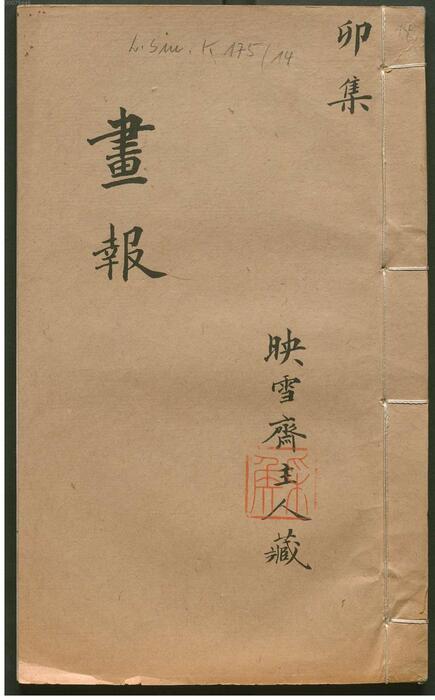 卯集
畫報
映雪齋主人藏
L. sin. K 175/14